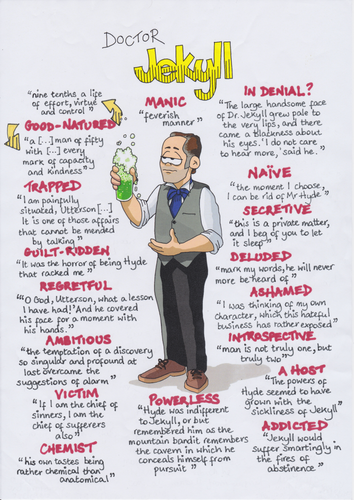 DOCTOR
Jekyll
"nine tenths a life
of effort, virtue
and control"
GOOD-NATURED
"a [...] man of fifty
with [...] every
mark of capacity
and kindness"
TRAPPED
"I am painfully
situated, Utterson [...]
It is one of those affairs
that cannot be mended
by talking"
GUILT-RIDDEN
"It was the horror of being Hyde
that racked me"
REGRETFUL
"'O God, Utterson, what a lesson
I have had!' And he covered
his face for a moment with
his hands."
AMBITIOUS
"the temptation of a discovery
so singular and profound at
last overcame the
suggestions of alarm"
VICTIM
"If I am the chief of
sinners, I am the
chief of sufferers
also"
CHEMIST
"his own tastes being
rather chemical than
anatomical"
MANIC
"feverish
manner"
POWERLESS
"Hyde was indifferent
to Jekyll, or but
remembered him as the
mountain bandit remembers
the cavern in which he
conceals himself from
pursuit"
IN DENIAL?
"The large handsome face
of Dr. Jekyll grew pale to
the very lips, and there
came a blackness about
his eyes. 'I do not care
to hear more,' said he."
NAÏVE
"the moment I choose,
I can be rid of Mr Hyde"
SECRETIVE
"this is a private matter,
and I beg of you to let
it sleep"
DELUDED
"mark my words, he will never
more be heard of"
ASHAMED
"I was thinking of my own
character, which this hateful
business has rather exposed"
INTRASPECTIVE
"man is not truly one, but
truly two"
A HOST
"The powers of
Hyde seemed to have
grown with the
sickliness of Jekyll"
ADDICTED
"Jekyll would
suffer smartingly in
the fires of
abstinence"